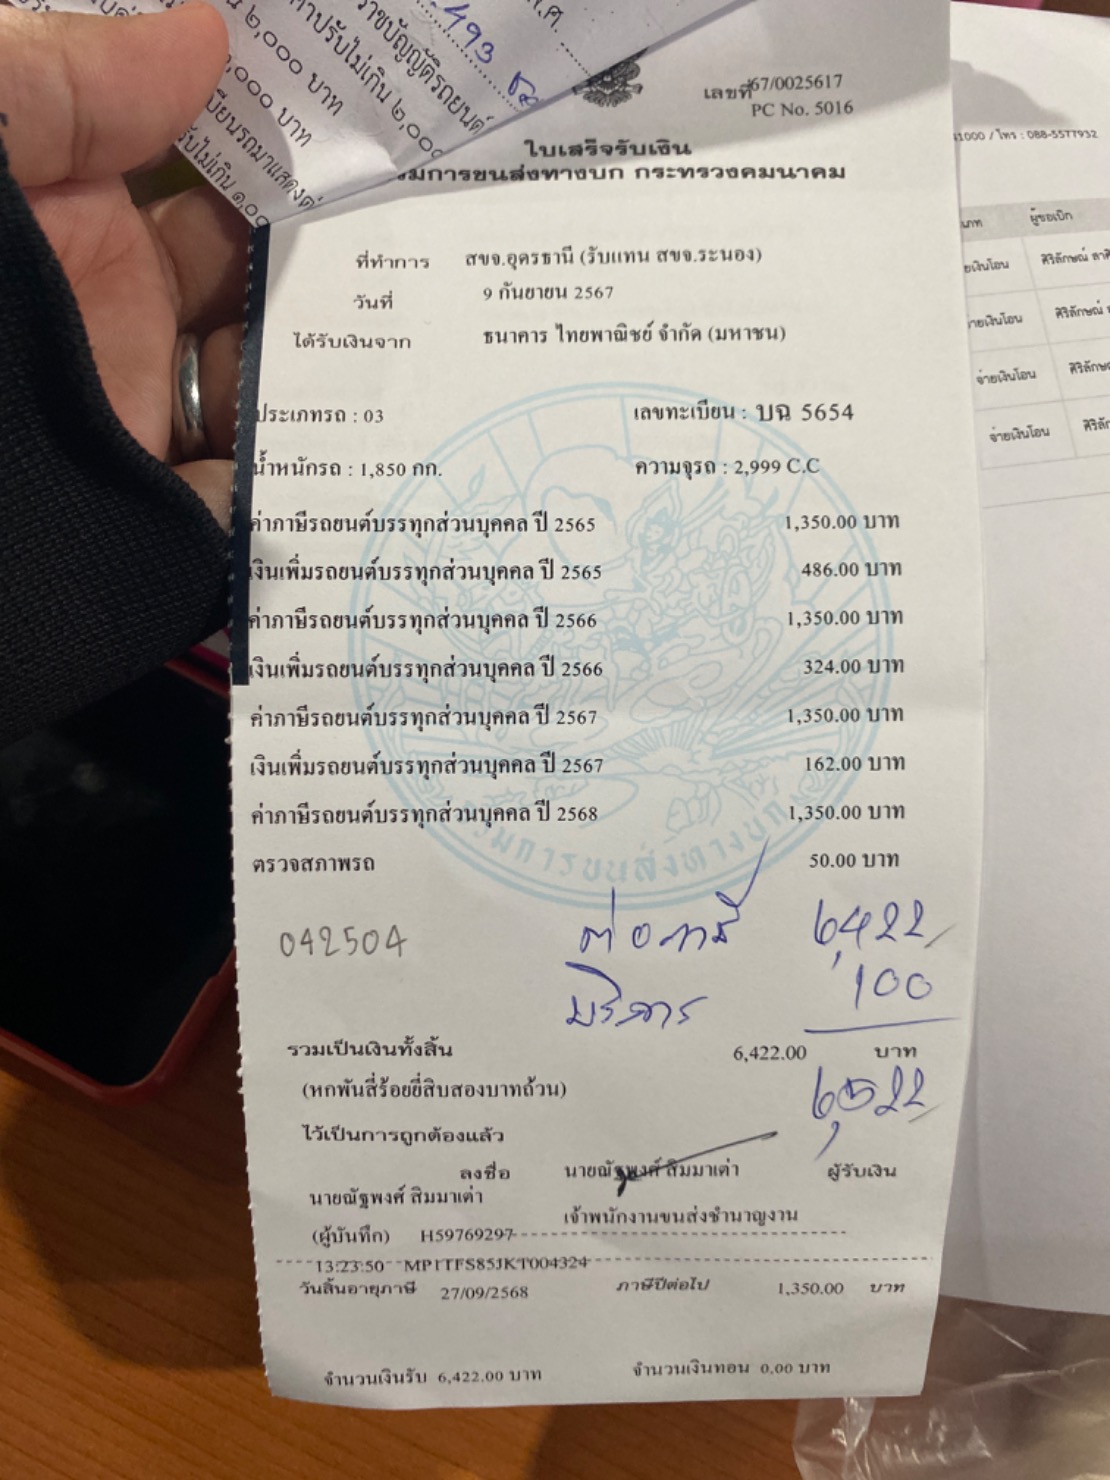 ๒,๐๐๐ บาท
ค่าปรับไม่เกิน ๒,๐๐๐
ราชบัญญัติรถยนต์
-493
เลขที่ 67/0025617
PC No. 5016
ใบเสร็จรับเงิน
กรมการขนส่งทางบก กระทรวงคมนาคม
ที่ทำการ สขจ.อุดรธานี (รับแทน สขจ.ระนอง)
วันที่ 9 กันยายน 2567
ได้รับเงินจาก ธนาคาร ไทยพาณิชย์ จำกัด (มหาชน)
ประเภทรถ : 03 เลขทะเบียน : บฉ 5654
น้ำหนักรถ : 1,850 กก. ความจุรถ : 2,999 C.C
ค่าภาษีรถยนต์บรรทุกส่วนบุคคล ปี 2565 1,350.00 บาท
เงินเพิ่มรถยนต์บรรทุกส่วนบุคคล ปี 2565 486.00 บาท
ค่าภาษีรถยนต์บรรทุกส่วนบุคคล ปี 2566 1,350.00 บาท
เงินเพิ่มรถยนต์บรรทุกส่วนบุคคล ปี 2566 324.00 บาท
ค่าภาษีรถยนต์บรรทุกส่วนบุคคล ปี 2567 1,350.00 บาท
เงินเพิ่มรถยนต์บรรทุกส่วนบุคคล ปี 2567 162.00 บาท
ค่าภาษีรถยนต์บรรทุกส่วนบุคคล ปี 2568 1,350.00 บาท
ตรวจสภาพรถ 50.00 บาท
กรมการขนส่งทางบก
042504 ต่อภาษี 6,422
บริการ 100
รวมเป็นเงินทั้งสิ้น 6,422.00 บาท
(หกพันสี่ร้อยยี่สิบสองบาทถ้วน) 6,522
ไว้เป็นการถูกต้องแล้ว
ลงชื่อ นายณัฐพงศ์ สิมมาเต่า ผู้รับเงิน
นายณัฐพงศ์ สิมมาเต่า เจ้าพนักงานขนส่งชำนาญงาน
(ผู้บันทึก) H59769297
13:23:50 MP1TFS85JKT004324
วันสิ้นอายุภาษี 27/09/2568 ภาษีปีต่อไป 1,350.00 บาท
จำนวนเงินรับ 6,422.00 บาท จำนวนเงินทอน 0.00 บาท
41000 / โทร : 088-5577932
ผู้ขอเบิก
จ่ายเงินโอน ศิริลักษณ์
จ่ายเงินโอน ศิริลักษณ์
จ่ายเงินโอน
จ่ายเงินโอน